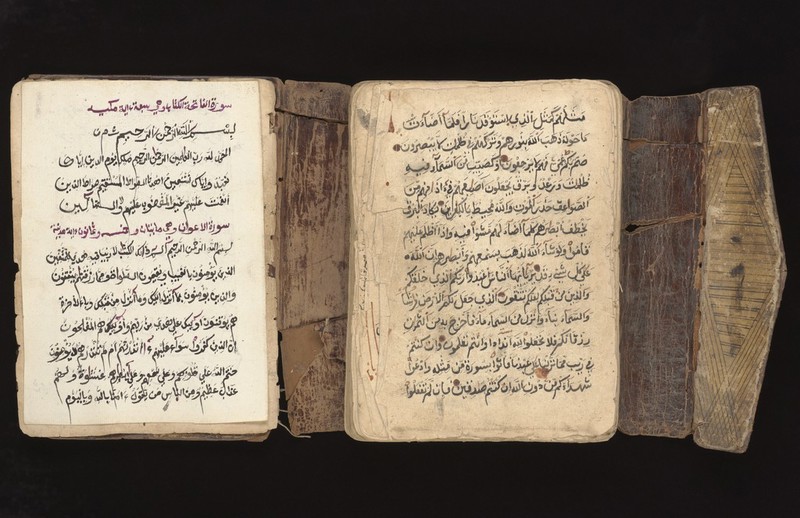 سورة الفاتحة الكتاب وهي سبعة اية مكية
بسم الله الرحمن الرحيم
الحمد لله رب العلمين الرحمن الرحيم ملك يوم الدين إياك
نعبد وإياك نستعين اهدنا الصراط المستقيم صراط الذين
أنعمت عليهم غير المغضوب عليهم ولا الضالين
سورة وهي مايتان وخمس وثمانون اية مدنية
بسم الله الرحمن الرحيم الم ذلك الكتب لا ريب فيه هدى للمتقين
الذين يؤمنون بالغيب ويقيمون الصلوة ومما رزقنهم ينفقون
والذين يؤمنون بما أنزل إليك وما أنزل من قبلك وبالاخرة
هم يوقنون أوليك على هدى من ربهم وأوليك هم المفلحون
إن الذين كفروا سواء عليهم ءأنذرتهم أم لم تنذرهم لا يؤمنون
ختم الله على قلوبهم وعلى سمعهم وعلى أبصرهم غشوة ولهم
عذاب عظيم ومن الناس من يقول ءامنا بالله وباليوم
مثلهم كمثل الذي استوقد نارا فلما أضاءت
ما حوله ذهب الله بنورهم وتركهم في ظلمت لا يبصرون
صم بكم عمي فهم لا يرجعون أو كصيب من السماء فيه
ظلمت ورعد وبرق يجعلون أصبعهم في ءاذانهم من
الصواعق حذر الموت والله محيط بالكفرين يكاد البرق
يخطف أبصرهم كلما أضاء لهم مشوا فيه وإذا أظلم عليهم
قاموا ولو شاء الله لذهب بسمعهم وأبصرهم إن الله
على كل شيء قدير يأيها الناس اعبدوا ربكم الذي خلقكم
والذين من قبلكم لعلكم تتقون الذي جعل لكم الأرض فرشا
والسماء بناء وأنزل من السماء ماء فأخرج به من الثمرت
رزقا لكم فلا تجعلوا لله أندادا وأنتم تعلمون وإن كنتم
في ريب مما نزلنا على عبدنا فأتوا بسورة من مثله وادعوا
شهداءكم من دون الله إن كنتم صدقين فإن لم تفعلوا